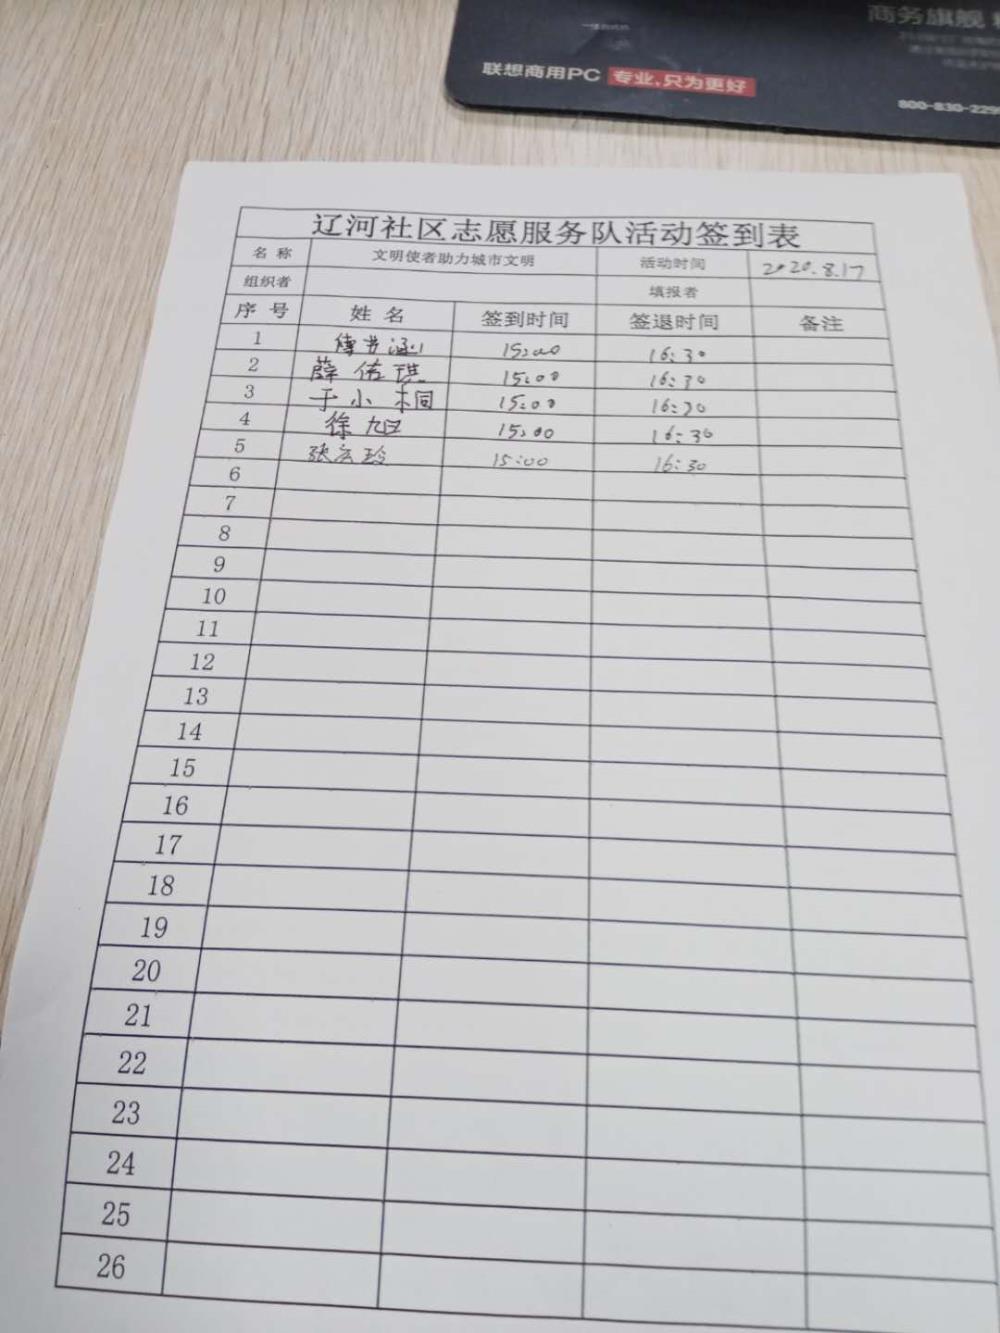 商务旗舰
联想商用PC 专业,只为更好
800-830-229
辽河社区志愿服务队活动签到表
名 称 文明使者助力城市文明 活动时间 2020.8.17
组织者 填报者
序 号 姓 名 签到时间 签退时间 备注
1 15:00 16:30
2 薛佑琪 15:00 16:30
3 于小桐 15:00 16:30
4 徐旭 15:00 16:30
5 张 玲 15:00 16:30
6
7
8
9
10
11
12
13
14
15
16
17
18
19
20
21
22
23
24
25
26